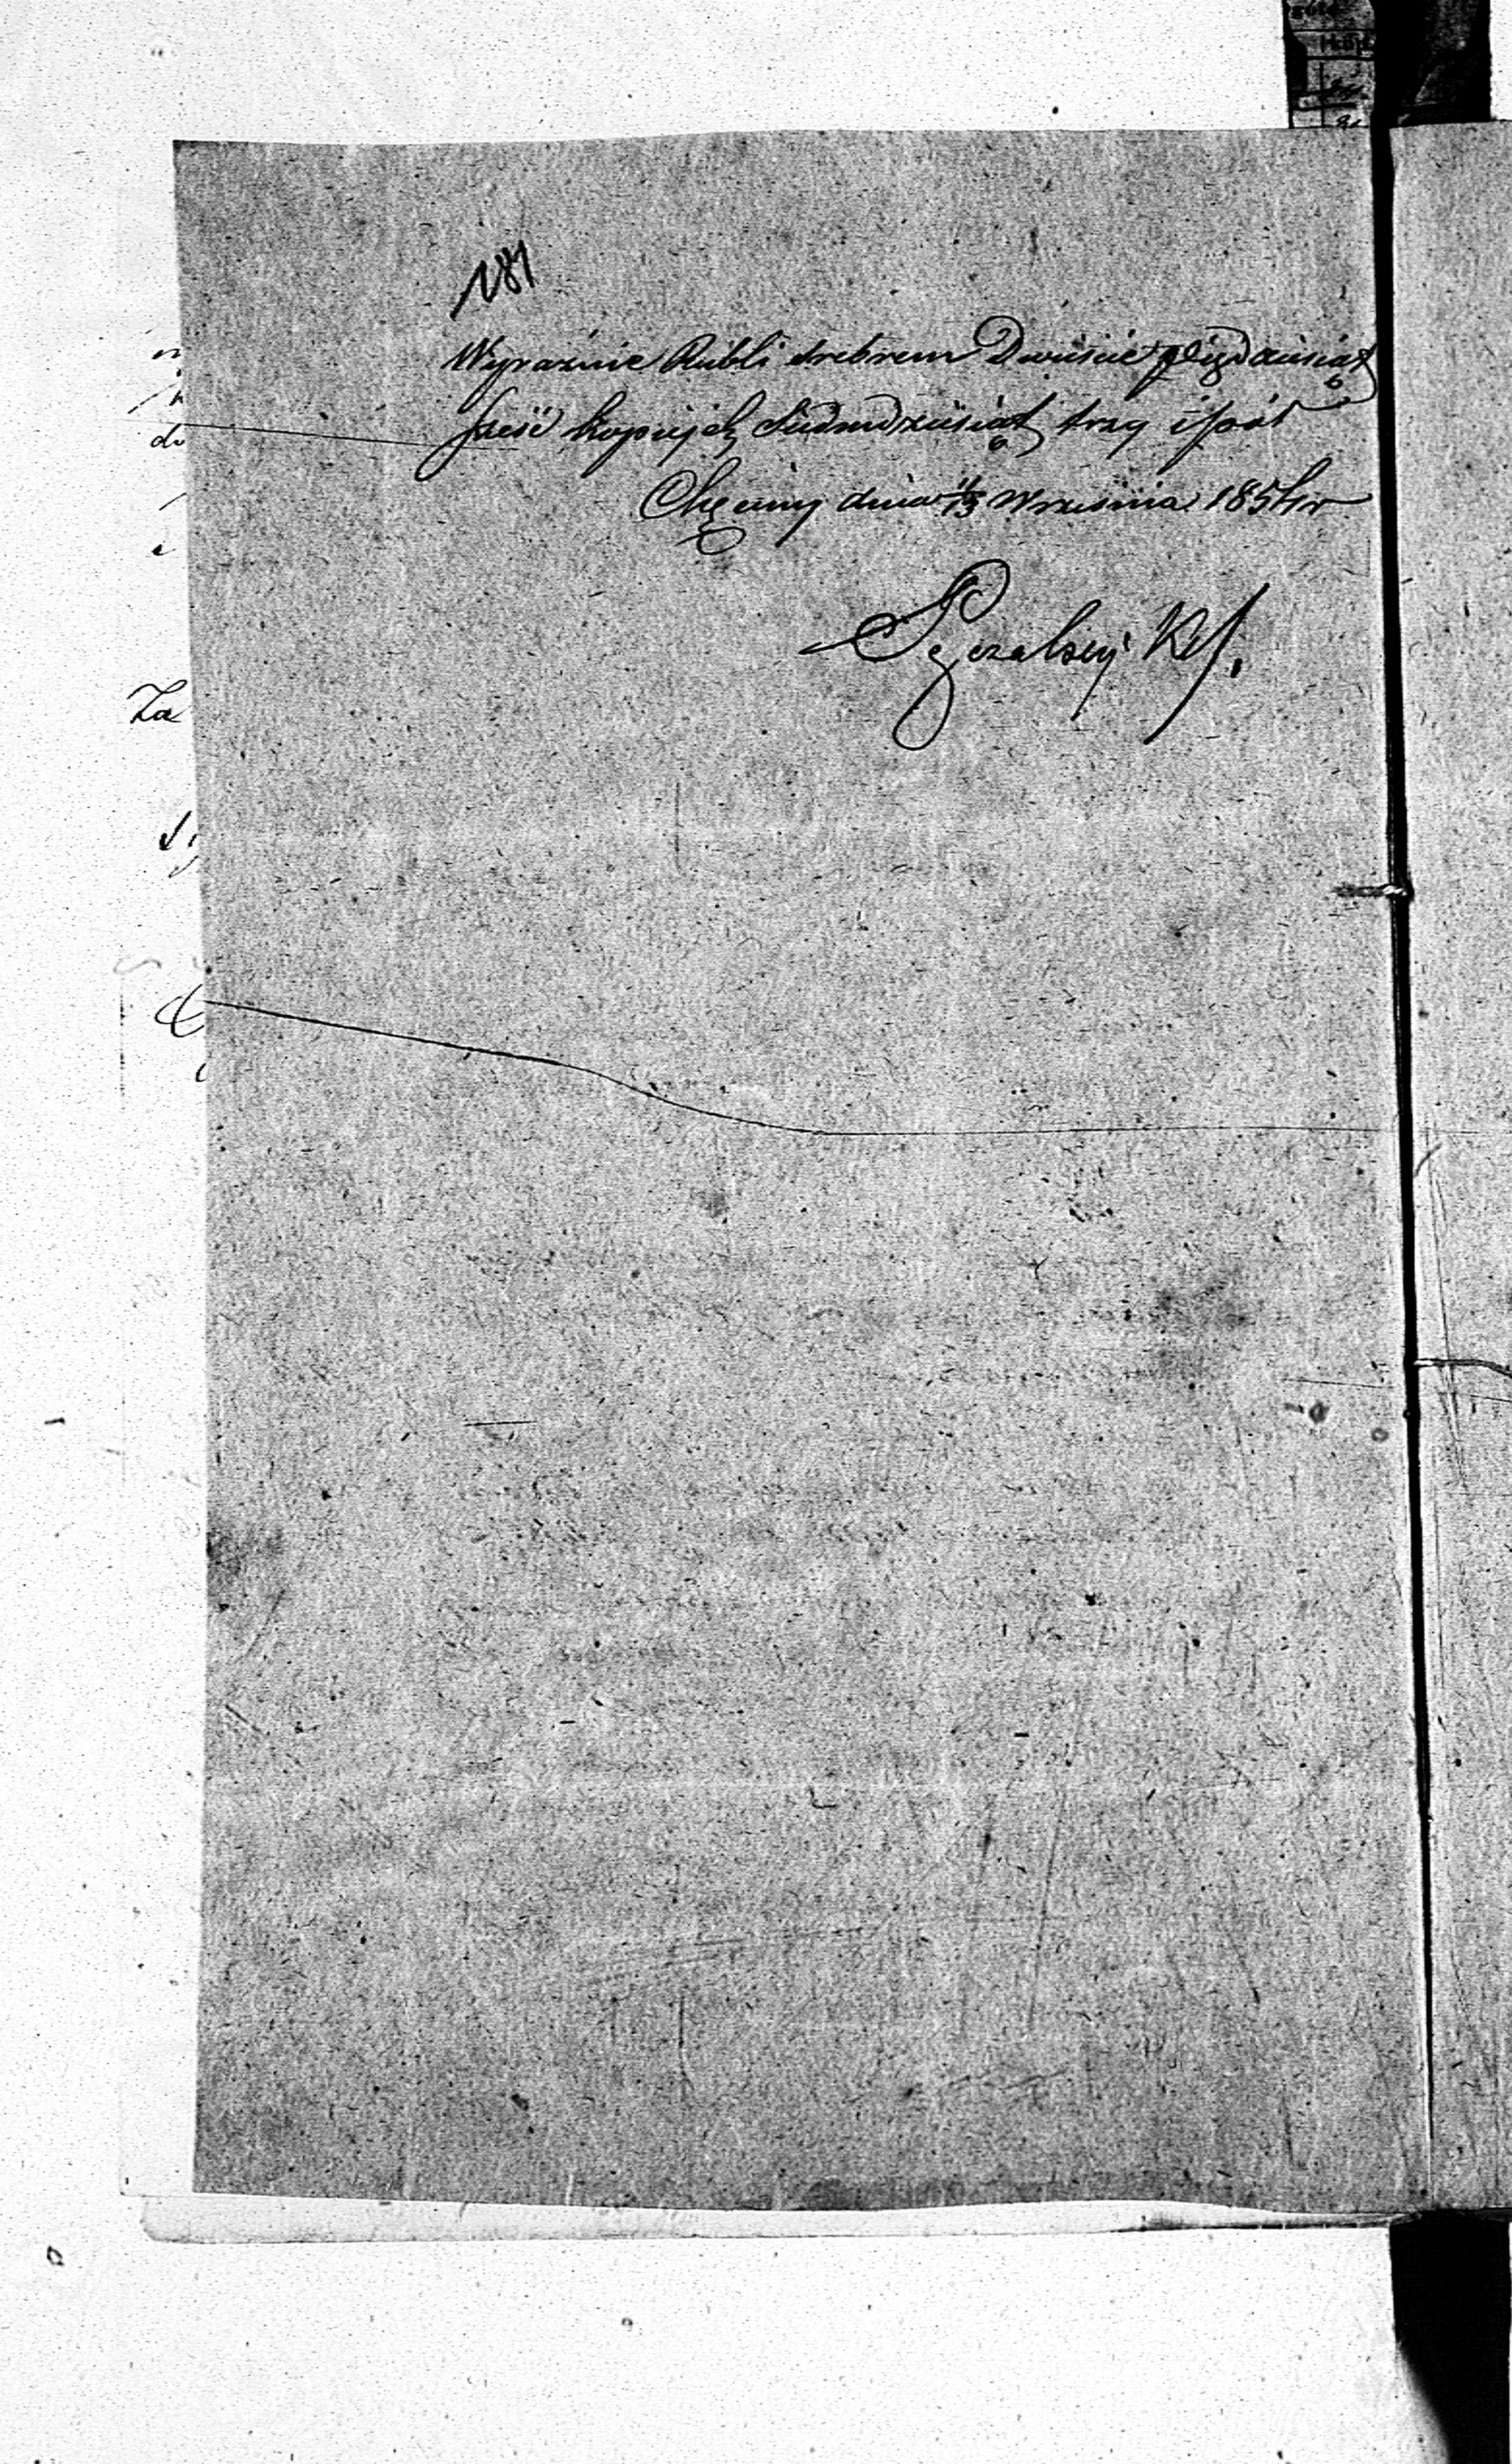 181
Wyraźnie Rubli srebrem Dwieście pięćdziesiąt
sześć kopiejek Siedmdziesiąt trzy i pół
Chęciny dnia 1/13 Września 1854 r
Za